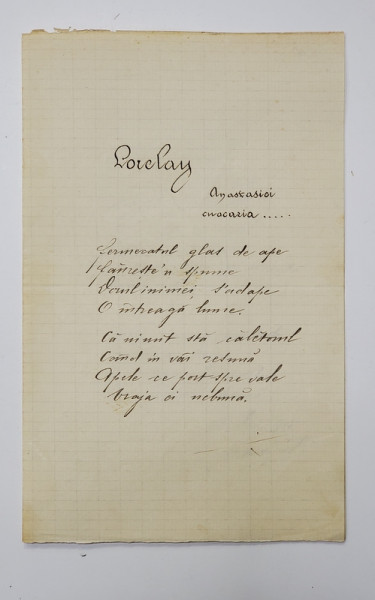 Lorelay
Anastasiei
Fermecatul glas de ape
Făurește'n spume
Dorul inimei s'adape
O întreagă lume.
Că uimit stă călĕtorul
Când în văi resună
Apele ce port spre vale
Vraja ei nebună.